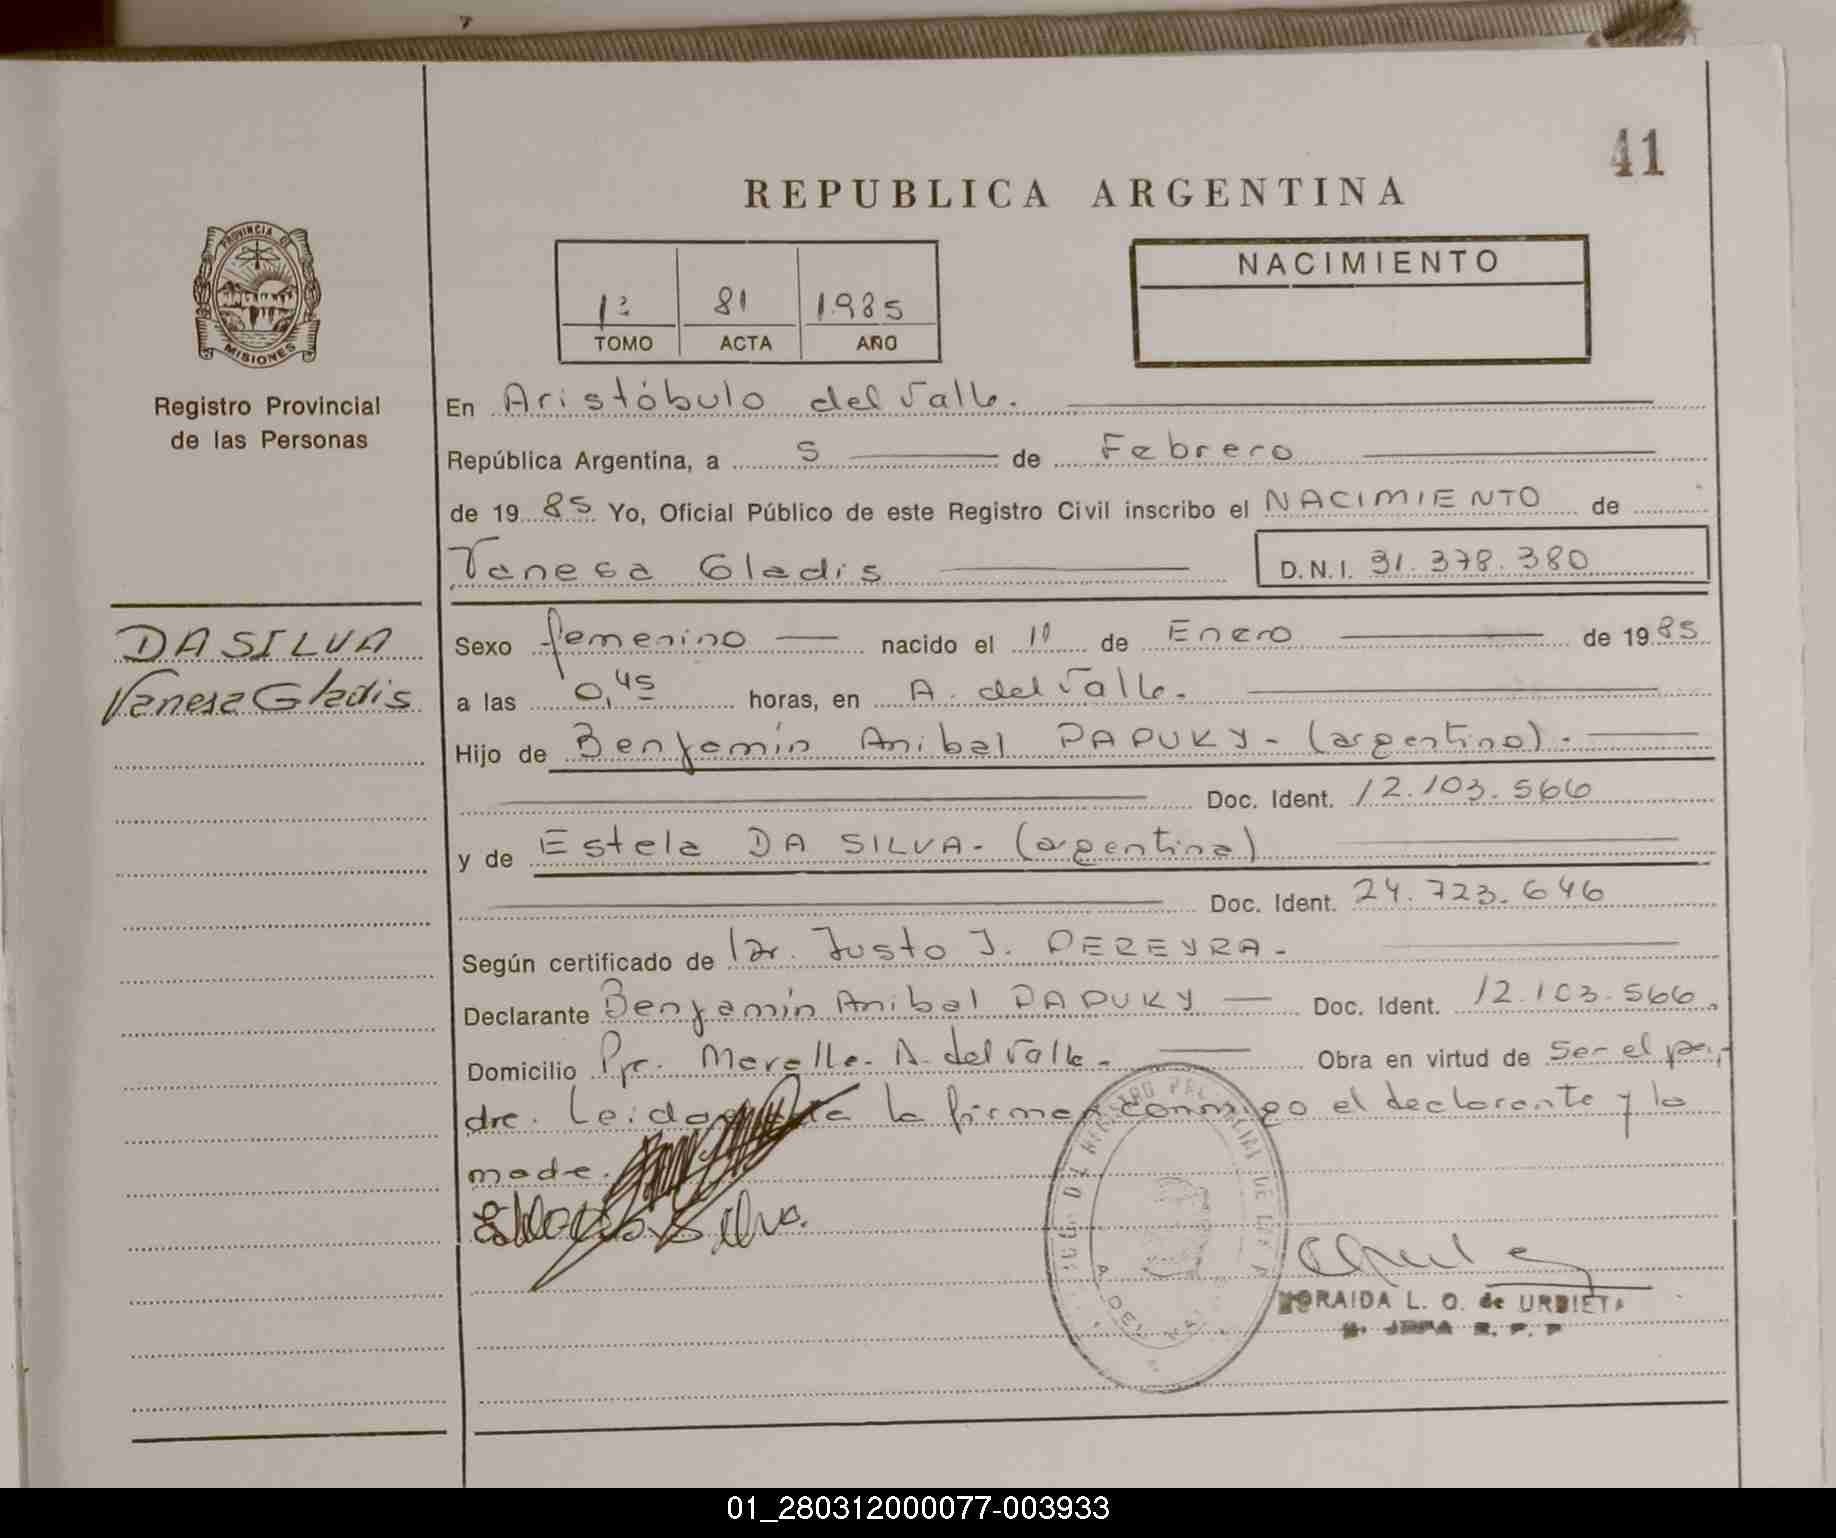 41
REPUBLICA ARGENTINA
PROVINCIA DE
MISIONES
Registro Provincial
de las Personas
1º 81 1.985
TOMO ACTA AÑO
NACIMIENTO
En Aristóbulo del Valle.
República Argentina, a 5 de Febrero
de 19 85 Yo, Oficial Público de este Registro Civil inscribo el NACIMIENTO de
Vanesa Gladis D.N.I. 31.378.380
DA SILVA
Vanesa Gladis
Sexo femenino nacido el 11 de Enero de 19 85
a las 0,45 horas, en A. del Valle.
Hijo de Benjamín Anibal PAPUKY - (argentino).
Doc. Ident. 12.103.566
y de Estela DA SILVA - (argentina)
Doc. Ident. 24.723.646
Según certificado de Dr. Justo J. PEREYRA -
Declarante Benjamín Anibal PAPUKY Doc. Ident. 12.103.566.
Domicilio Pje. A. del Valle - Obra en virtud de ser el pa-
dre. Leida la firman conmigo el declarante y la
madre.
Silva.
A. DEL
ZORAIDA L. O. de URBIETA
JEFA R. P. P
01_280312000077-003933